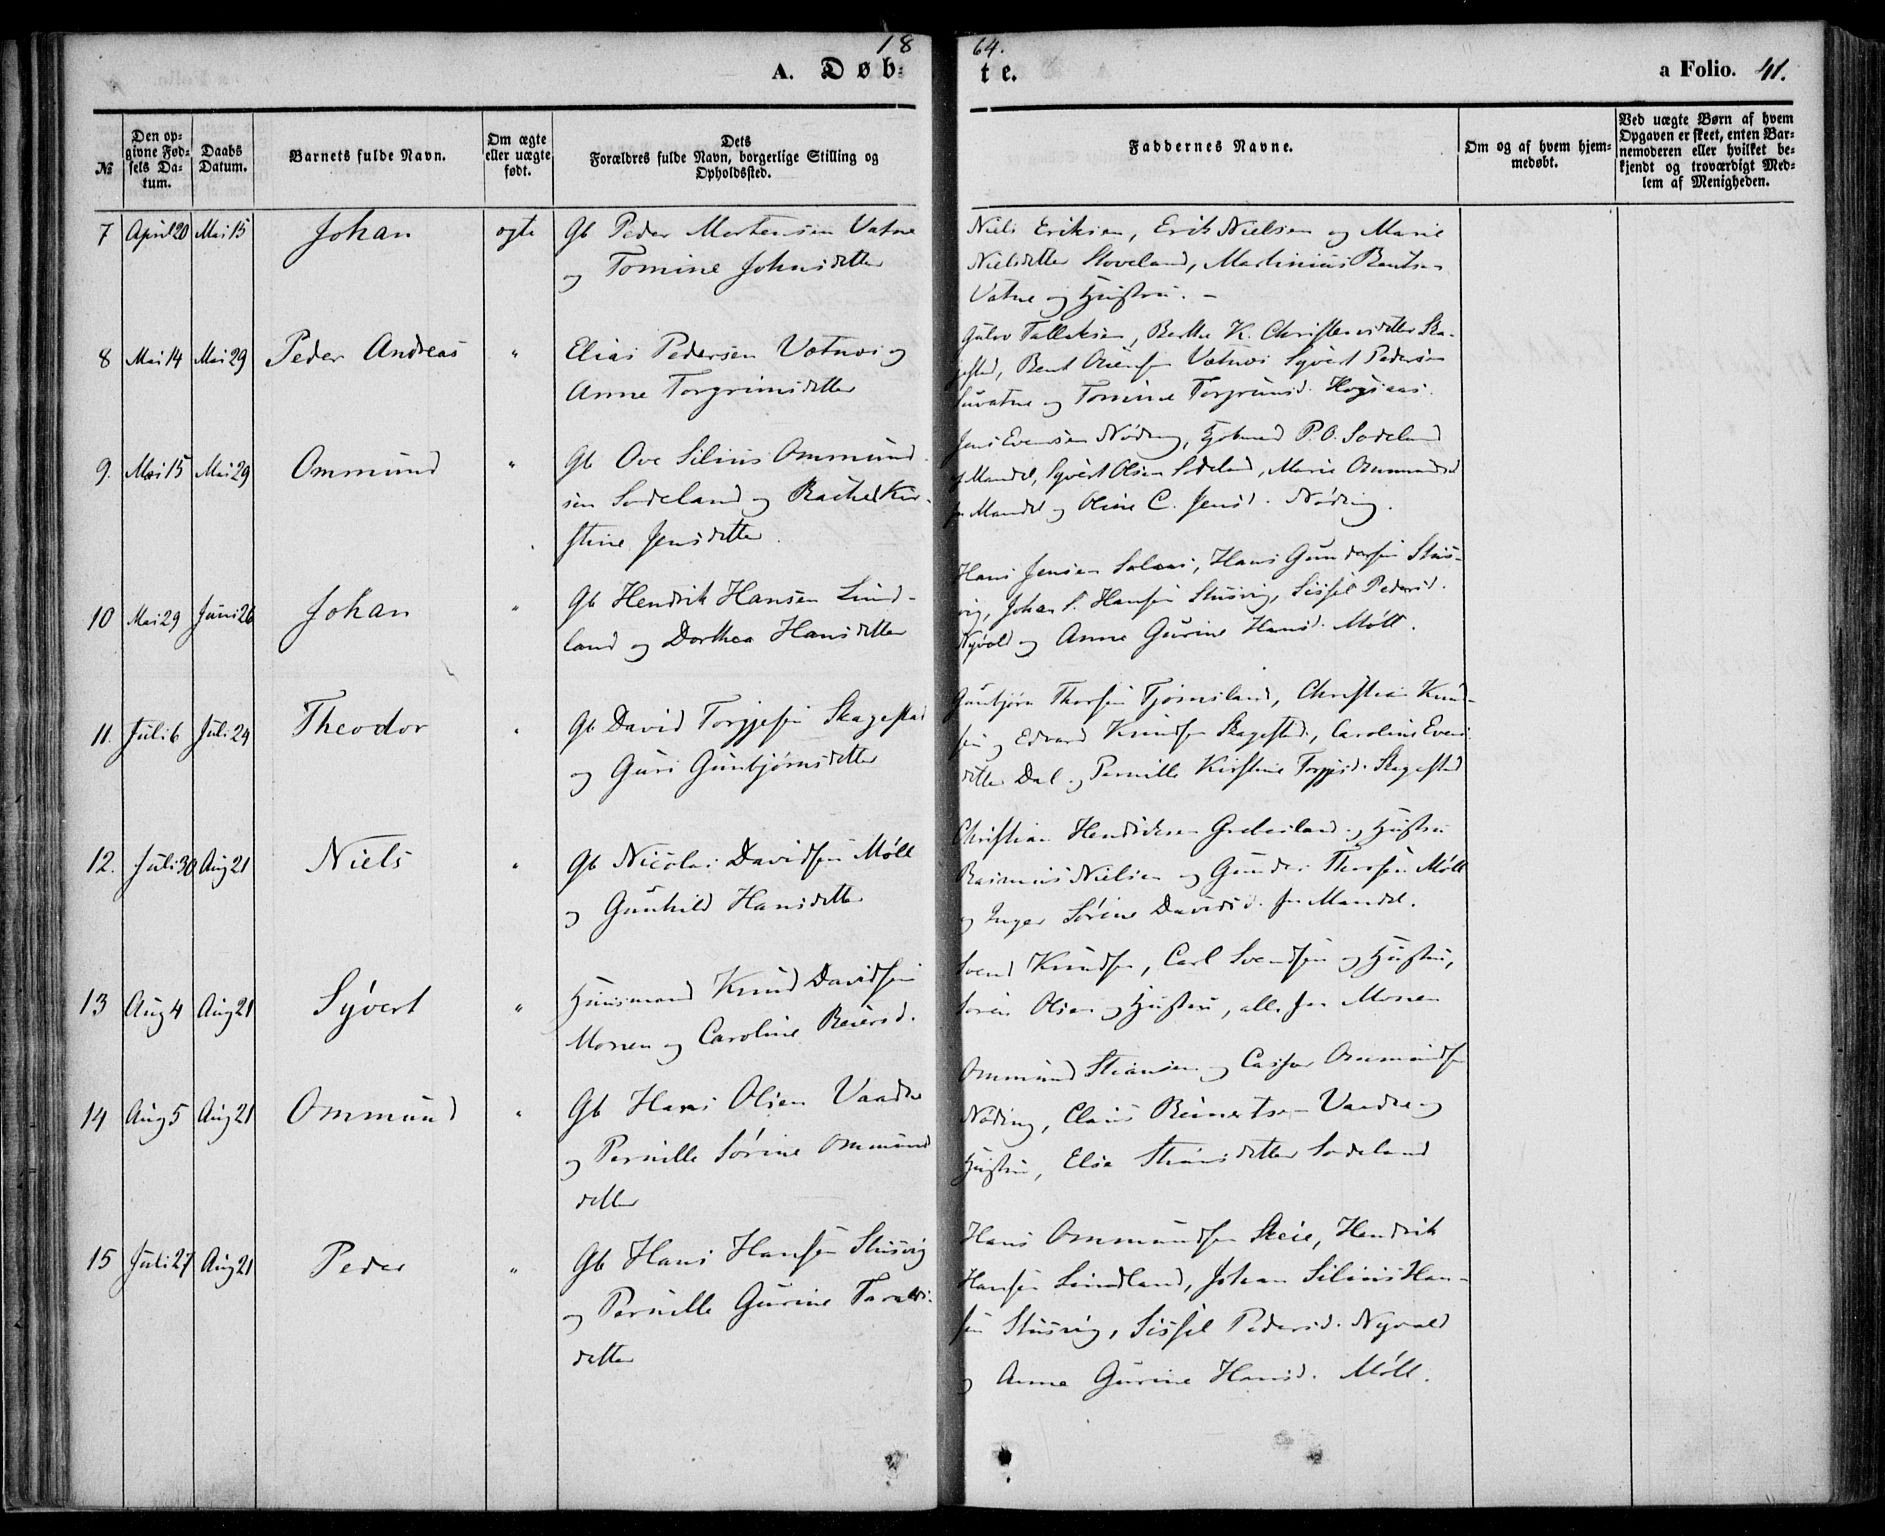 1864.
A. Døbte.
a Folio. 41.
№
Den opgivne Fødsels Datum.
Daabs Datum.
Barnets fulde Navn.
Om ægte eller uægte født.
Dets Forældres fulde Navn, borgerlige Stilling og Opholdssted.
Faddernes Navne.
Om og af hvem hjemmedøbt.
Ved uægte Børn af hvem Opgaven er skeet, enten Barnemoderen eller hvilket bekjendt og troværdigt Medlem af Menigheden.
7 April 20 Mai 15 Johan ægte Gb Peder Mortensen Vatne
og Tomine Johnsdetter
Niels Eriksen, Erik Nielsen og Marie
Nielsdetter Stoveland, Martinius Bentsen
Vatne og Hustru. –
8 Mai 14 Mai 29 Peder Andreas " Elias Pedersen Vatnøi og
Anne Torgrimsdetter
Gulov Tallaksen, Berthe K. Christensdetter Ska-
gestad, Bent Vatnøi Syvert Pedersen
og Tomine Torgrimsd.
9. Mai 15 Mai 29 Ommund " Gb Ove Silius Ommund-
sen Sodeland og Rachel Kir-
stine Jensdetter.
Jens Evensen Nøding, P. O. Sodeland
Mandal, Syvert Olsen Sodeland, Marie Ommundsd
fra Mandal og Oline C. Jensd. Nøding.
10 Mai 29 Juni 26 Johan " Gb Hendrik Hansen Lund-
land og Dorthea Hansdetter
Hans Jensen Solaas, Hans Gundersen Stus-
vig, Johan S. Hansen Stusvig, Sissel Pedersd.
Nyvold og Anne Gurine Hansd. Møll.
11. Juli 6 Juli 24 Theodor " Gb David Torjesen Skagestad
og Guri Gunbjørnsdetter
Gunbjørn Thorsen Tjomsland, Christian Knud-
sen og Edvard Knudsen Skagestad, Caroline Evens-
detter Dal og Pernille Kirstine Torjesd. Skagestad
12. Juli 30 Aug 21 Niels " Gb Nicolai Davidsen Møll
og Gunhild Hansdetter
Christian Hendriksen Grebesland og Hustru
Rasmus Nielsen og Gunder Thorsen Møll
og Inger Sørine Davidsd. fra Mandal.
13 Aug 4 Aug 21 Syvert " Huusmand Knud Davidsen
Monen og Caroline Reiersd.
Svend Knudsen, Carl Svendsen og Hustru,
Søren Olsen og Hustru, alle fra Monen
14 Aug 5 Aug 21 Ommund " Gb Hans Olsen Vaadne
og Pernille Sørine Ommunds
detter
Ommund Stiansen og Casper Ommundsen
Nøding, Claus Reinertsen Vaadne og
Hustru, Elsa Stiansdetter Sodeland
15 Juli 27 Aug 21 Peder " Gb Hans Hansen Stusvig
og Pernille Gurine Taralds-
detter
Hans Ommundsen Skeie, Hendrik
Hansen Lundland, Johan Silius Han-
sen Stusvig, Sissel Pedersd. Nyvold
og Anne Gurine Hansd. Møll.